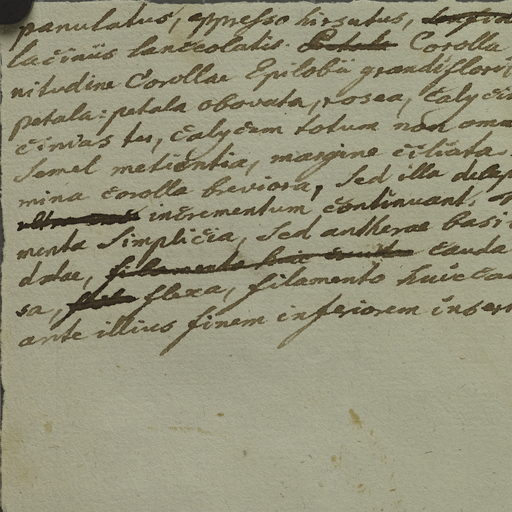 panulatus, appresso hirsutus,
laciniis lanceolatis. Petala Corolla
nitudine Corollae Epilobii grandiflori
petala: petala obovata, rosea, calyci
cinias ter, calycem totum non om
semel metientia, margine ciliata.
mina corolla breviora, sed illa
incrementum continuant,
menta simplicia, sed antherae basi
datae, filamenta cauda
sa, flexa, filamento huic
ante illius finem inferiorem insert